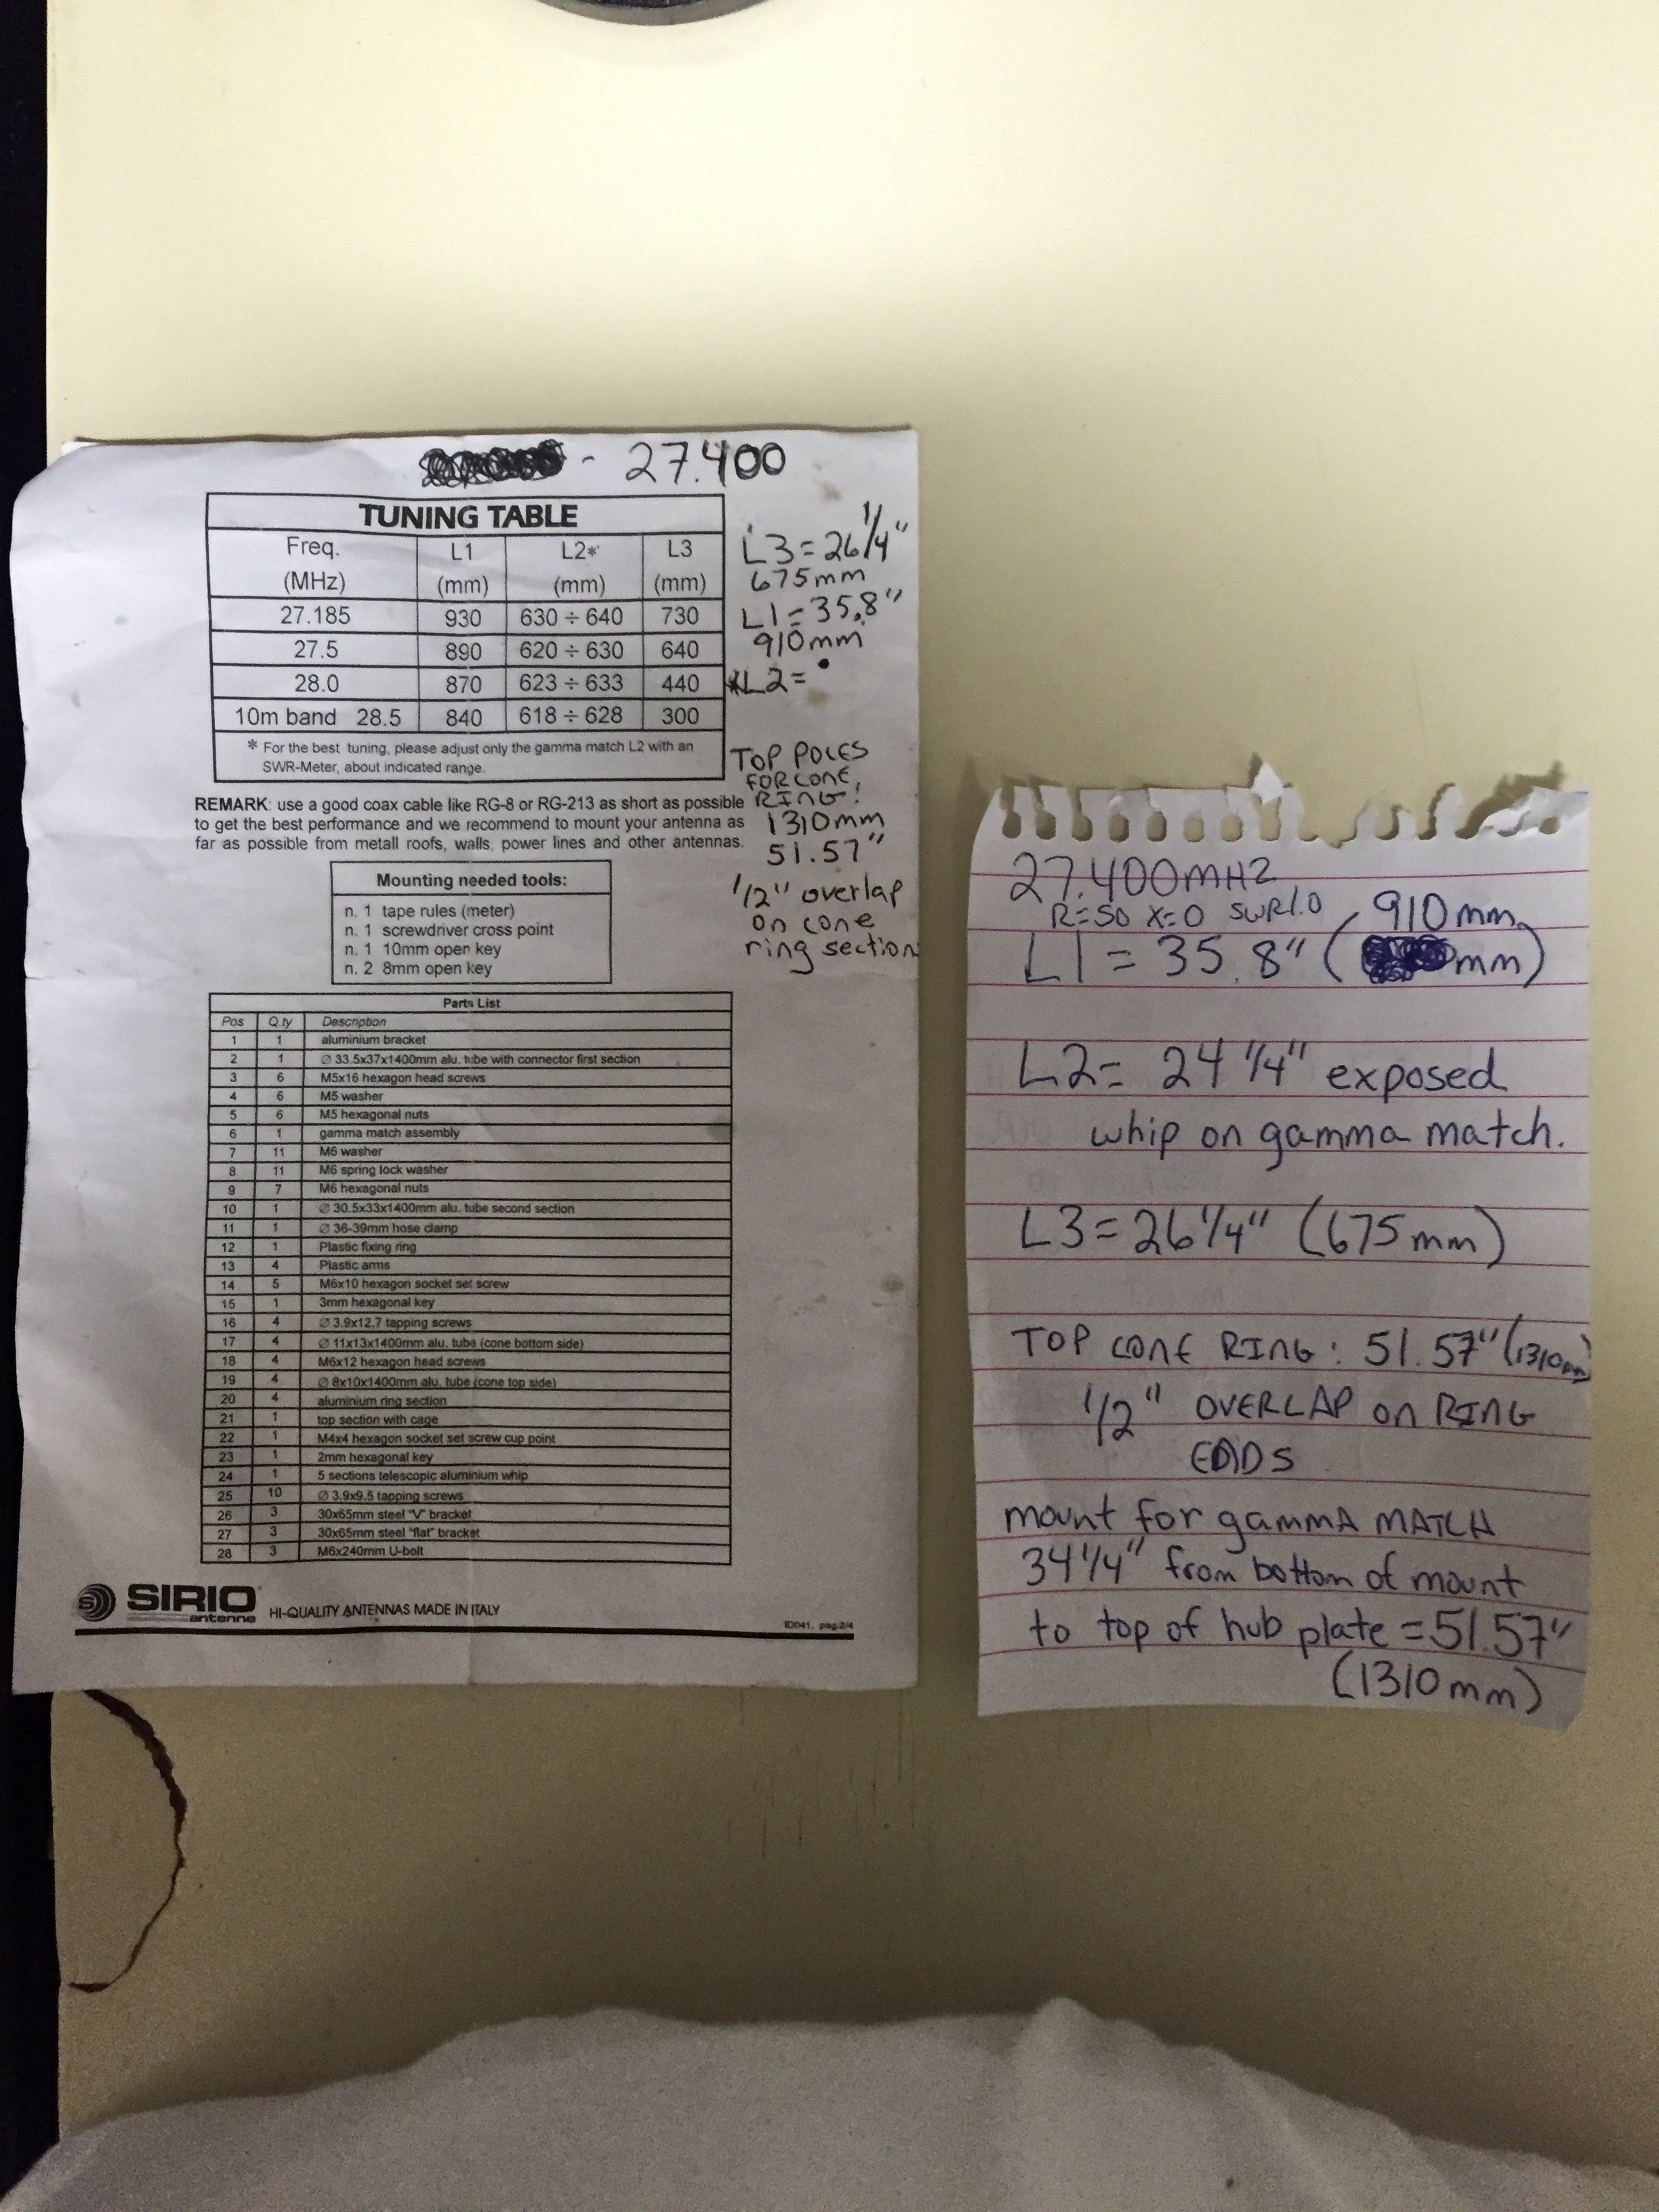 - 27.400
TUNING TABLE
Freq. (MHz) L1 (mm) L2* (mm) L3 (mm)
27.185 930 630 ÷ 640 730
27.5 890 620 ÷ 630 640
28.0 870 623 ÷ 633 440
10m band 28.5 840 618 ÷ 628 300
* For the best tuning, please adjust only the gamma match L2 with an
SWR-Meter, about indicated range.
L3 = 26 1/4"
675mm
L1 = 35.8"
910mm
*L2 =
TOP POLES
FOR CONE,
RING!
1310mm
51.57"
1/2" overlap
on cone
ring section
REMARK: use a good coax cable like RG-8 or RG-213 as short as possible
to get the best performance and we recommend to mount your antenna as
far as possible from metall roofs, walls, power lines and other antennas.
Mounting needed tools:
n. 1 tape rules (meter)
n. 1 screwdriver cross point
n. 1 10mm open key
n. 2 8mm open key
Parts List
Pos Q.ty Description
1 1 aluminium bracket
2 1 Ø 33.5x37x1400mm alu. tube with connector first section
3 6 M5x16 hexagon head screws
4 6 M5 washer
5 6 M5 hexagonal nuts
6 1 gamma match assembly
7 11 M6 washer
8 11 M6 spring lock washer
9 7 M6 hexagonal nuts
10 1 Ø 30.5x33x1400mm alu. tube second section
11 1 Ø 36-39mm hose clamp
12 1 Plastic fixing ring
13 4 Plastic arms
14 5 M6x10 hexagon socket set screw
15 1 3mm hexagonal key
16 4 Ø 3.9x12.7 tapping screws
17 4 Ø 11x13x1400mm alu. tube (cone bottom side)
18 4 M6x12 hexagon head screws
19 4 Ø 8x10x1400mm alu. tube (cone top side)
20 4 aluminium ring section
21 1 top section with cage
22 1 M4x4 hexagon socket set screw cup point
23 1 2mm hexagonal key
24 1 5 sections telescopic aluminium whip
25 10 Ø 3.9x9.5 tapping screws
26 3 30x65mm steel "V" bracket
27 3 30x65mm steel "flat" bracket
28 3 M6x240mm U-bolt
SIRIO antenne HI-QUALITY ANTENNAS MADE IN ITALY
ID041, pag.2/4
27.400MHZ
R=50 X=0 SWR1.0
910mm
L1 = 35.8" ( mm)
L2= 24 1/4" exposed
whip on gamma match.
L3 = 26 1/4" (675mm)
TOP CONE RING: 51.57" (1310mm)
1/2" OVERLAP on RING
ENDS
mount for gammA MATCH
34 1/4" from bottom of mount
to top of hub plate = 51.57"
(1310mm)